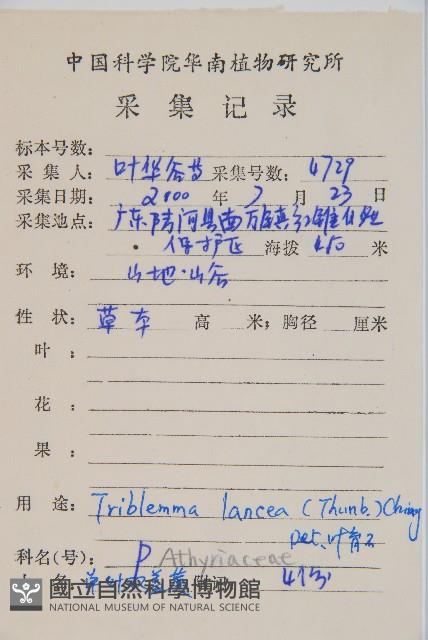 中国科学院华南植物研究所
采集记录
标本号数：
采集人：叶华谷等 采集号数：4729
采集日期：2000年7月23日
采集地点：广东陆河县南万镇红锥林
保护区 海拔 450 米
环境：山地·山谷
性状：草本 高 米；胸径 厘米
叶：
花：
果：
用途：Triblemma lancea (Thunb.) Ching
Det. 叶育石
科名(号)：P Athyriaceae
名：单叶双盖蕨 附记 4份
國立自然科學博物館
NATIONAL MUSEUM OF NATURAL SCIENCE